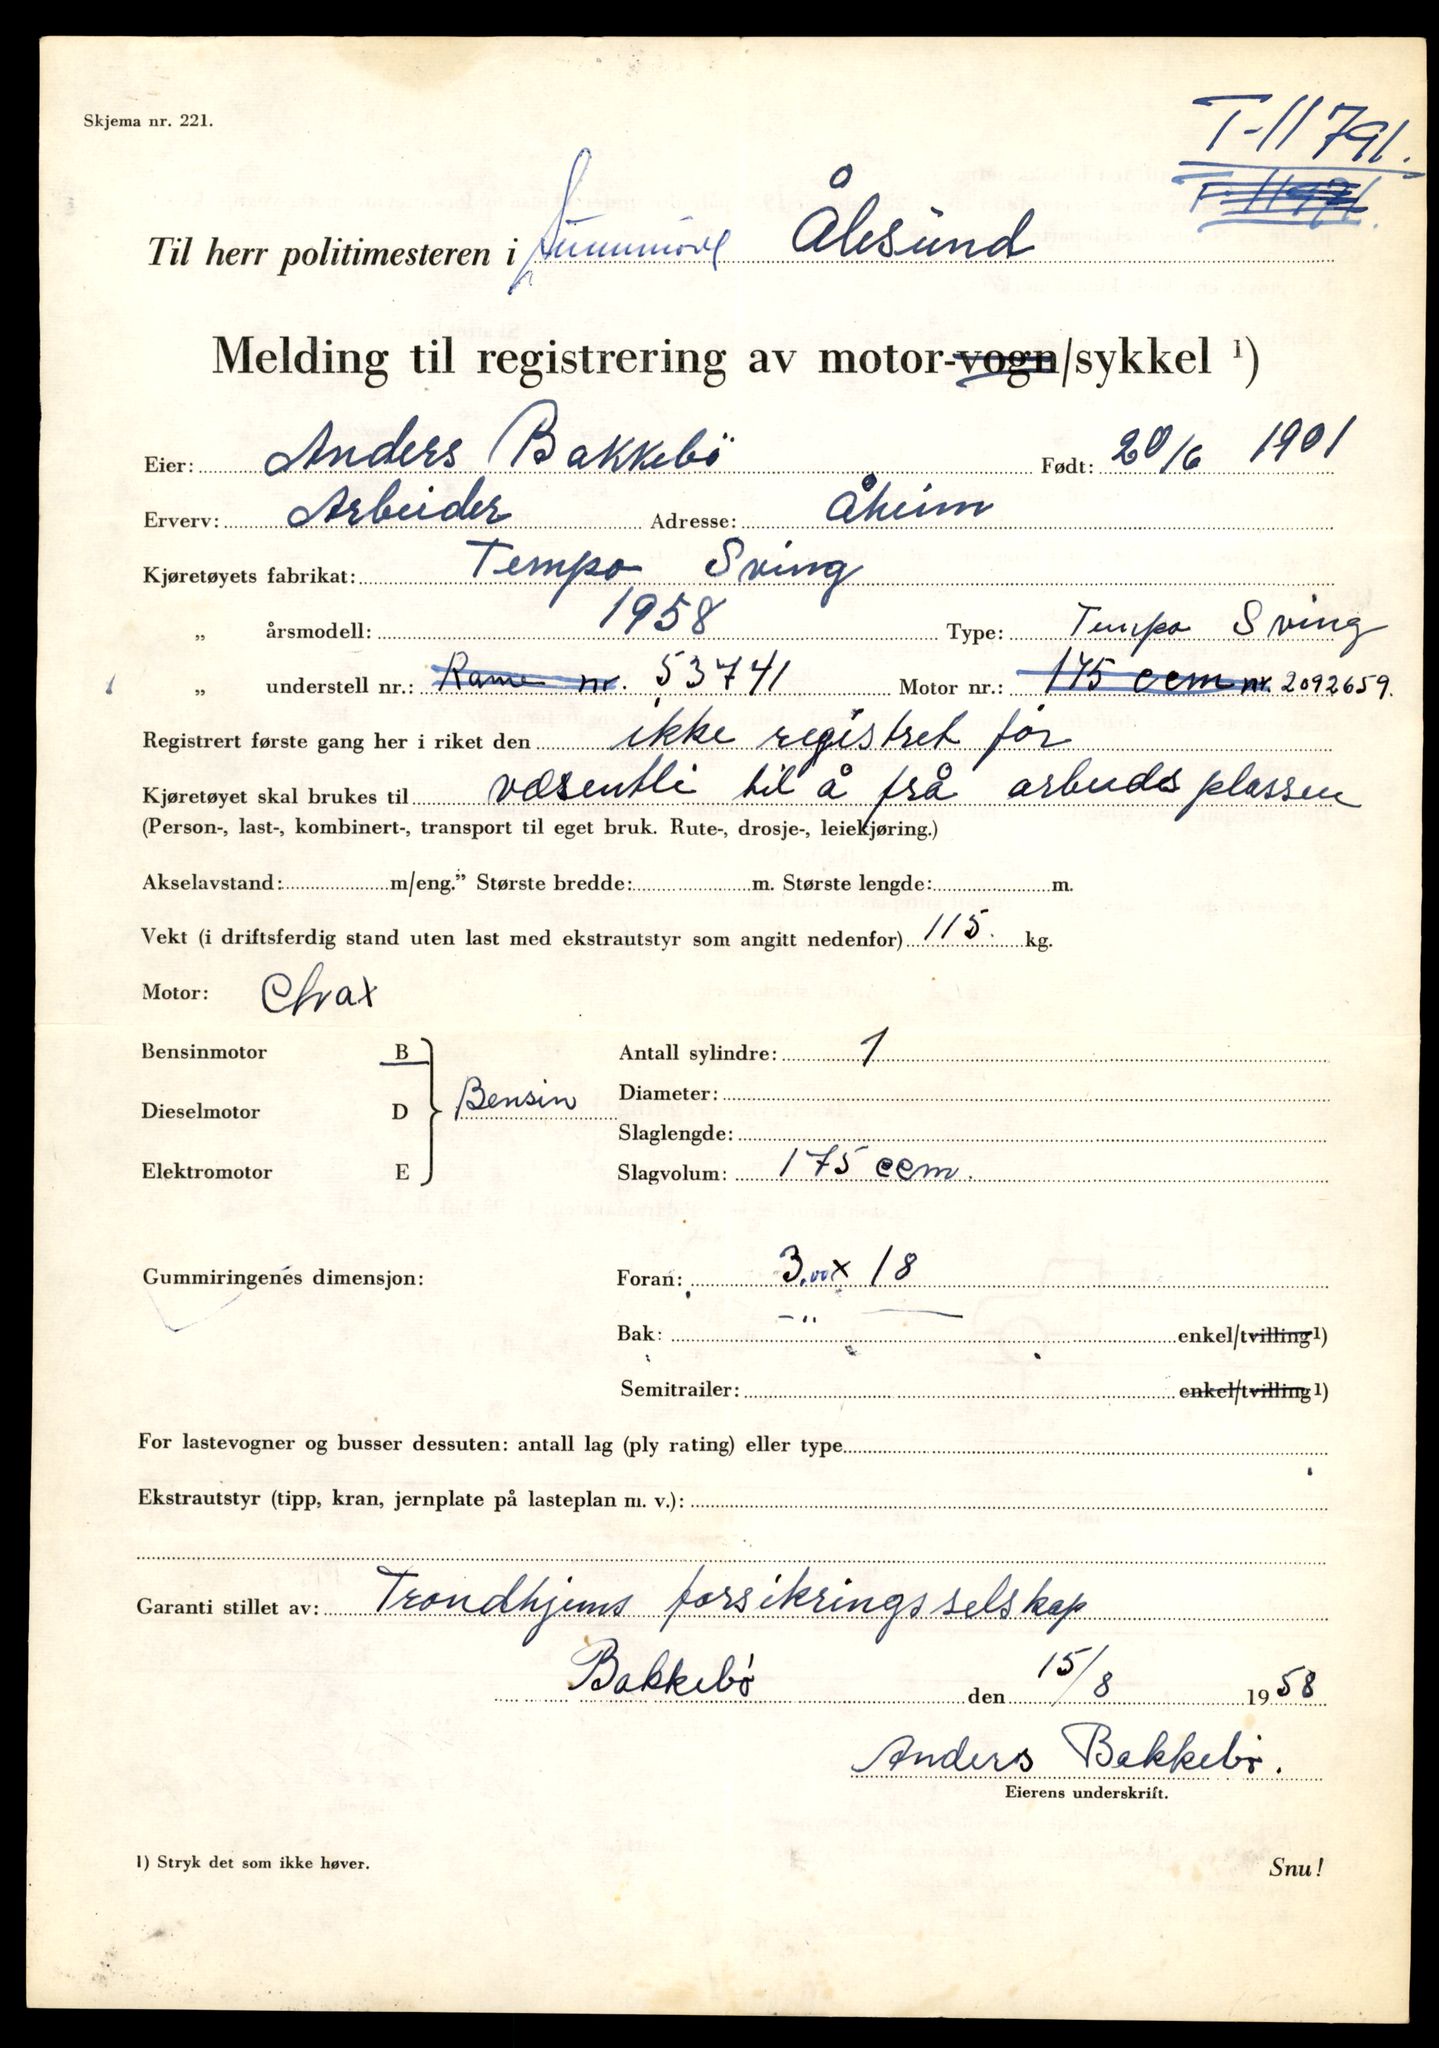 Skjema nr. 221.
T-11791.
Til herr politimesteren i Sunnmøre Ålesund
Melding til registrering av motor-vogn/sykkel ¹)
Eier: Anders Bakkebö Født: 20/6 1901
Erverv: Arbeider Adresse: Åheim
Kjøretøyets fabrikat: Tempo Sving
„ årsmodell: 1958 Type: Tempo Sving
„ understell nr.: Rame nr. 53741 Motor nr.: 175 ccm nr. 2092659.
Registrert første gang her i riket den ikke registret för
Kjøretøyet skal brukes til væsentli til å frå arbeids plassen
(Person-, last-, kombinert-, transport til eget bruk. Rute-, drosje-, leiekjøring.)
Akselavstand: m/eng.” Største bredde: m. Største lengde: m.
Vekt (i driftsferdig stand uten last med ekstrautstyr som angitt nedenfor) 115. kg.
Motor:
Bensinmotor B Antall sylindre: 1
Diameter:
Dieselmotor D Bensin
Slaglengde:
Elektromotor E Slagvolum: 175 ccm.
Gummiringenes dimensjon: Foran: 3.00 x 18
Bak: -„- enkel/tvilling ¹)
Semitrailer: enkel/tvilling ¹)
For lastevogner og busser dessuten: antall lag (ply rating) eller type
Ekstrautstyr (tipp, kran, jernplate på lasteplan m. v.):
Garanti stillet av: Trondhjems forsikringsselskap
Bakkebö den 15/8 1958
Anders Bakkebö.
Eierens underskrift.
1) Stryk det som ikke høver.
Snu!